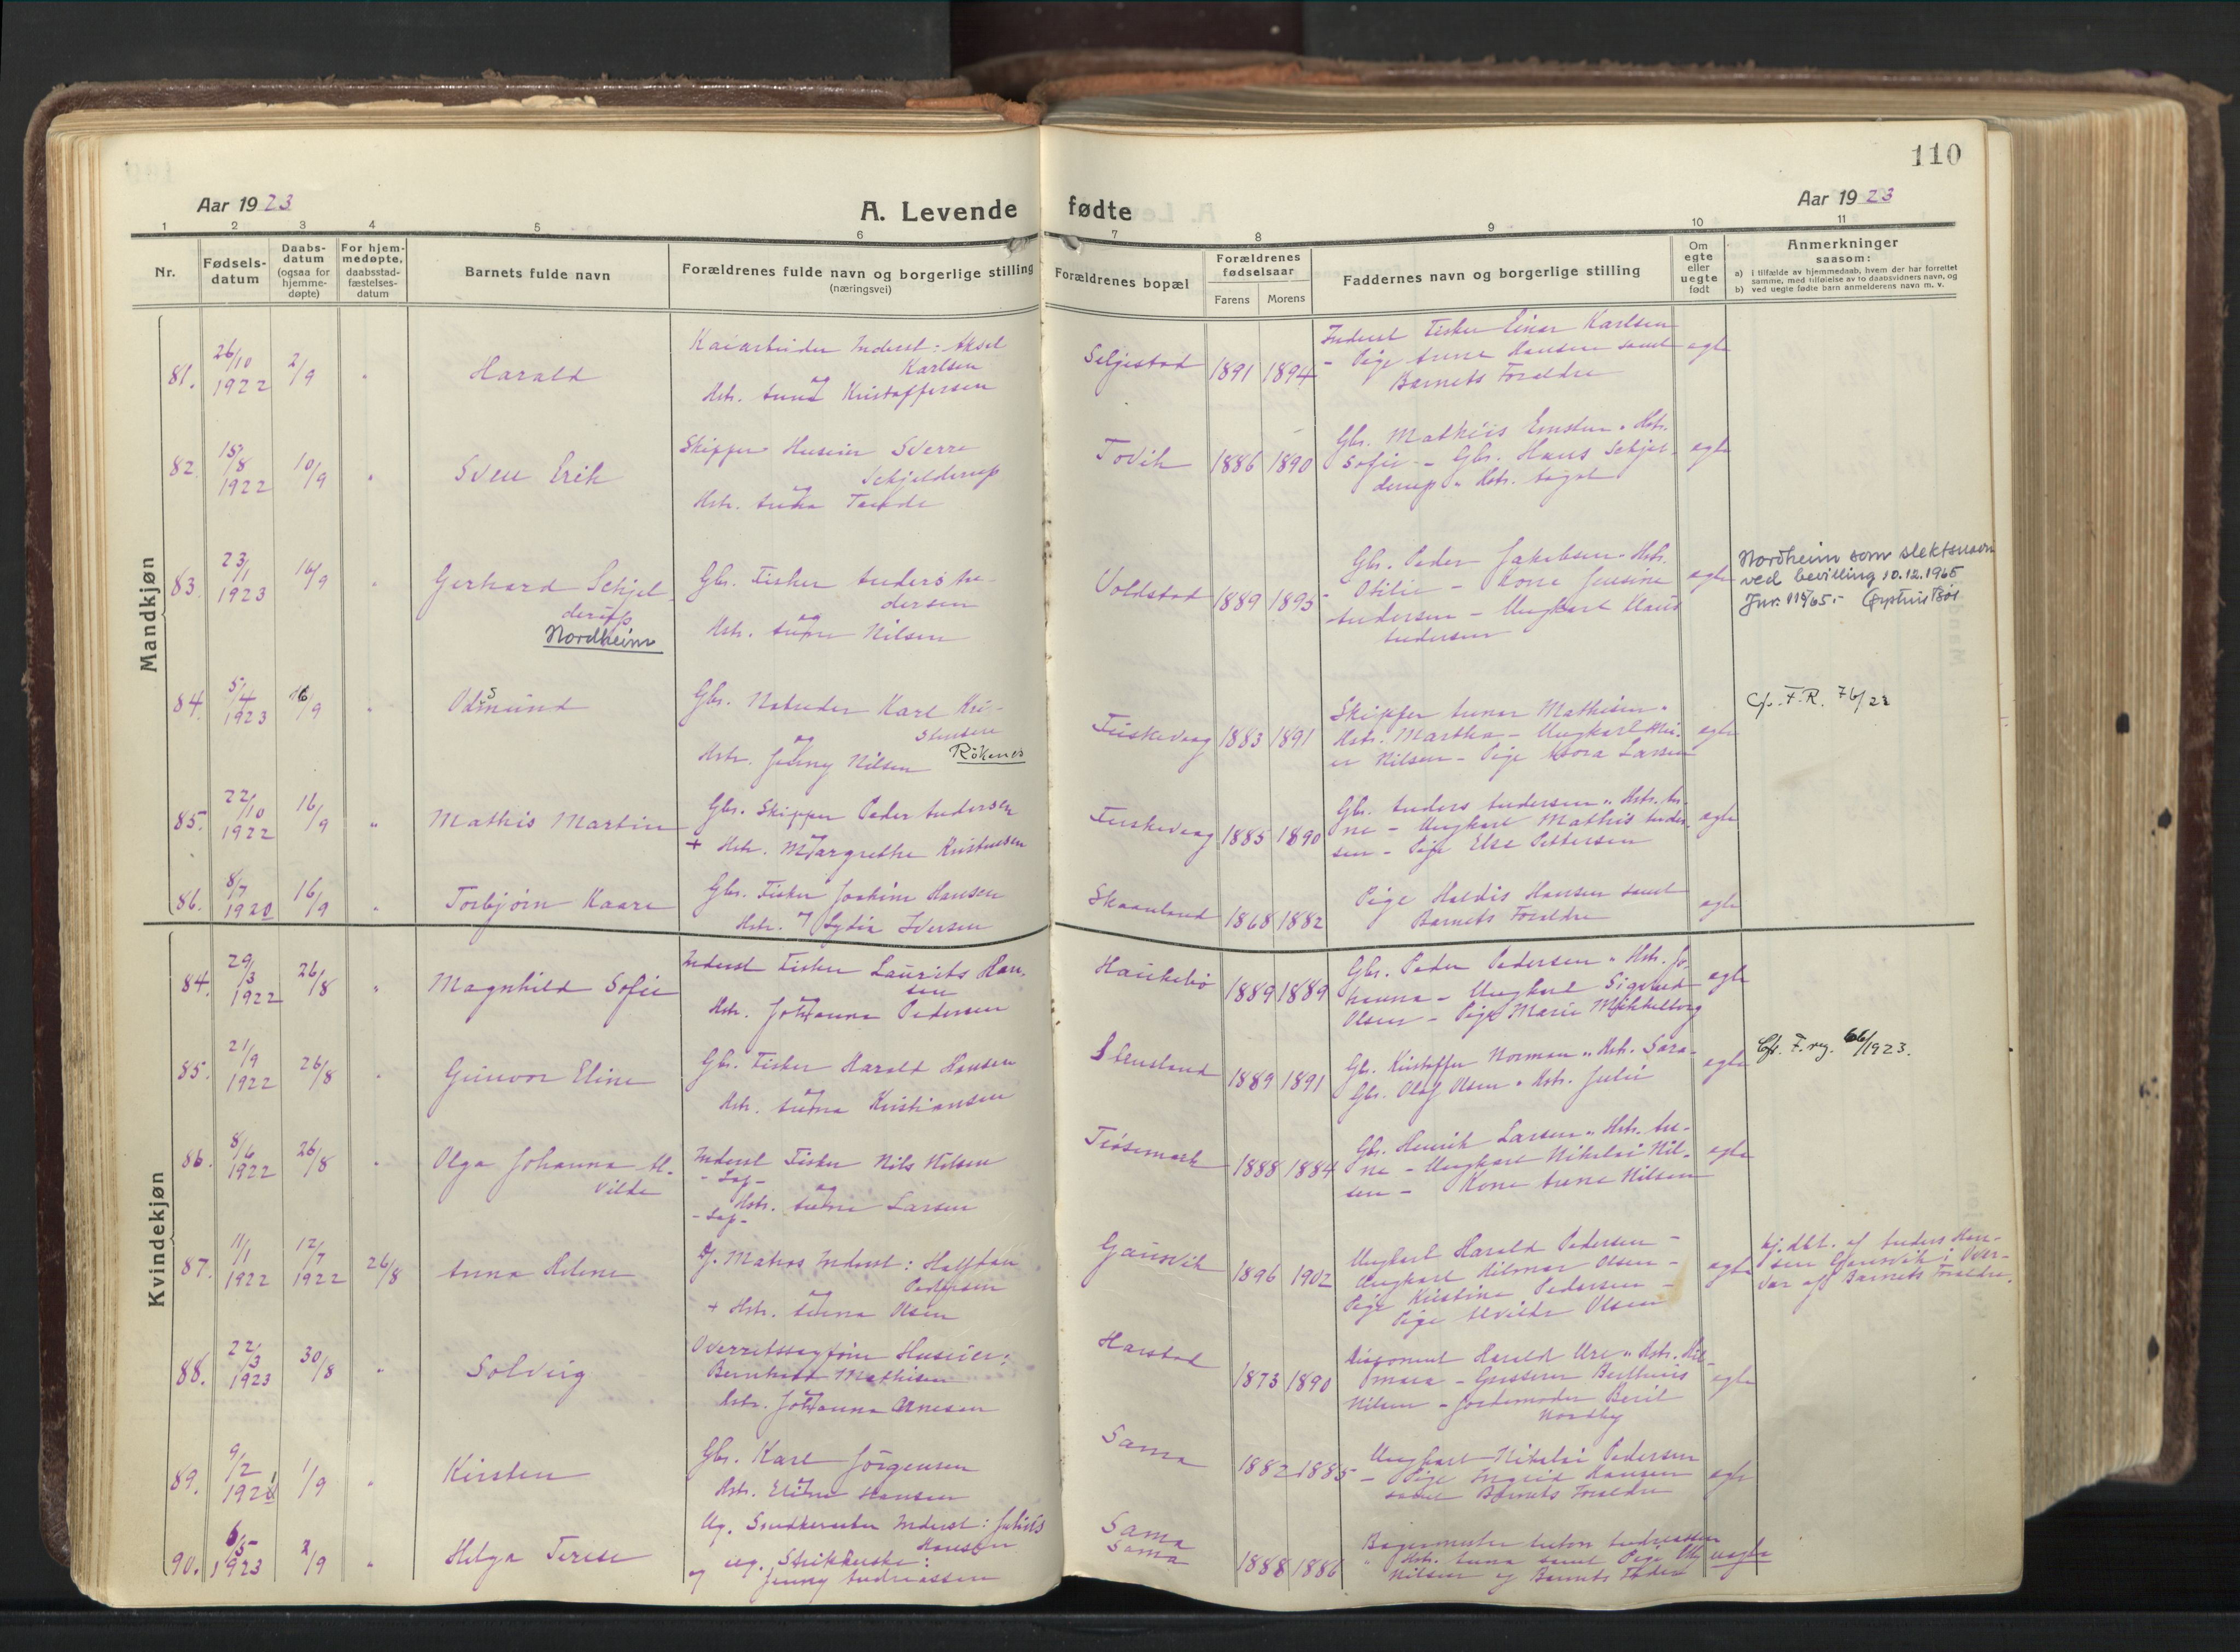 110
Aar 1923
A. Levende fødte
Aar 1923
1 2 3 4 5 6 7 8 9 10 11
Nr.
Fødsels-
datum
Daabs-
datum
(ogsaa for
hjemme-
døpte)
For hjem-
medøpte,
daabsstad-
fæstelses-
datum
Barnets fulde navn
Forældrenes fulde navn og borgerlige stilling
(næringsvei)
Forældrenes bopæl
Forældrenes
fødselsaar
Farens Morens
Faddernes navn og borgerlige stilling
Om
egte
eller
uegte
født
Anmerkninger
saasom:
a) i tilfælde av hjemmedaab, hvem der har forrettet
samme, med tilføielse av to daabsvidners navn, og
b) ved uegte fødte barn anmelderens navn m. v.
Mandkjøn
81. 26/10 1922 2/9 " Harald
Kaiarbeider Inderst: Aksel
Karlsen
og
Hstr. Anna Kristoffersen
Seljestad 1891 1894
Inderst Fisker Einar Karlsen
- Pige Anna Hansen samt
Barnets Forældre
egte
82. 15/8 1922 10/9 " Sven Erik
Skipper Huseier Sverre
Schjelderup
og
Hstr. Anna Tande
Tovik 1886 1890
Gbr. Mathias Ernstsen " Hstr.
Sofie - Gbr. Hans Schjel-
derup " Hstr. Aagot
egte
83. 23/1 1923 16/9 " Gerhard Schjel-
derup
Nordheim
Gbr. Fisker Anders An-
dersen
og
Hstr. Anna Nilsen
Voldstad 1889 1895
Gbr. Peder Jakobsen " Hstr.
Otilie - Kone Jensine
Andersen - Ungkarl Klaus
Andersen
egte
Nordheim som slektsnavn
ved bevilling 10.12.1965
Jnr. 119/65.-
84. 5/4 1923 16/9 " Odsmund
Gbr. Notreder Karl Kri-
stensen
og
Hstr. Jenny Nilsen Røkenes
Fuskevaag 1883 1891
Skipper Mathisen "
Hstr. Martha - Ungkarl
Nilsen - Pige Dora Larsen
egte
Cfr. F.R. 76/22
85. 22/10 1922 16/9 " Mathis Martin
Gbr. Skipper Peder Andersen
og
+ Hstr. Margrethe Kristensen
Fuskevaag 1885 1890
Gbr. Anders Andersen " Hstr. An-
na - Ungkarl Mathis Ander-
sen - Pige Else Pettersen
egte
86. 8/7 1920 16/9 " Torbjørn Kaare
Gbr. Fisker Joakim Hansen
og
Hstr. Lydia Iversen
Skaanland 1868 1882
Pige Haldis Hansen samt
Barnets Forældre
egte
Kvindekjøn
84. 29/3 1922 26/8 " Magnhild Sofie
Inderst Fisker Laurits Han-
sen
og
Hstr. Johanna Pedersen
Haukebø 1889 1889
Gbr. Peder Pedersen " Hstr. Jo-
hanna - Ungkarl Sigurd
Olsen - Pige Marie Mikkelborg
egte
85. 21/9 1922 26/8 " Gunvor Eline
Gbr. Fisker Harald Hansen
og
Hstr. Anna Kristiansen
Stensland 1889 1891
Gbr. Kristoffer Norman " Hstr. Sara -
Gbr. Olaf Olsen " Hstr. Julie
egte
Cfr. F.reg. 66/1923.
86. 8/6 1922 26/8 " Olga Johanna Al-
vilde
Inderst Fisker Nils Nilsen
- Lap -
og
Hstr. Anna Larsen
- Lap -
Trøsemark 1888 1884
Gbr. Henrik Larsen " Hstr. An-
na - Ungkarl Nikolai Nil-
sen - Kone Anna Nilsen
egte
87. 11/1 1922 12/7 1922 26/8 Anna Helene
Matros Inderst: Halfdan
Pedersen
og
+ Hstr. Anna Olsen
Gausvik 1896 1902
Ungkarl Harald Pedersen -
Ungkarl Hilmar Olsen -
Pige Kristine Pedersen -
Pige Alvilde Olsen
egte
hj. dbt. af Anders Han-
sen Gausvik i Over-
vær af Barnets Forældre.
88. 22/3 1923 30/8 " Solveig
Overretssagfører Huseier:
Bernhard Mathisen
og
Hstr. Johanna Arnesen
Harstad 1873 1890
Disponent Harald Ure " Hstr. Hil-
mara - Grosserer Berthius
Nilsen - Jordemoder Beril
Nordby
egte
89. 9/2 1921 1/9 " Kirsten
Gbr. Karl Jörgensen
og
Hstr. Elina Hansen
Sama 1882 1885
Ungkarl Nikolai Pedersen
- Pige Ingrid Hansen
samt Barnets Forældre
egte
90. 6/5 1923 2/9 " Helga Terese
Ug. Snedkermester Inderst: Julius
Hansen
og ug. Strikkerske:
Jenny Andreassen
Sama
Sama 1888 1886
Bagermester Anton Andreassen
" Hstr. Anna samt Pige
Nilsen og Barnets Fader
uegte